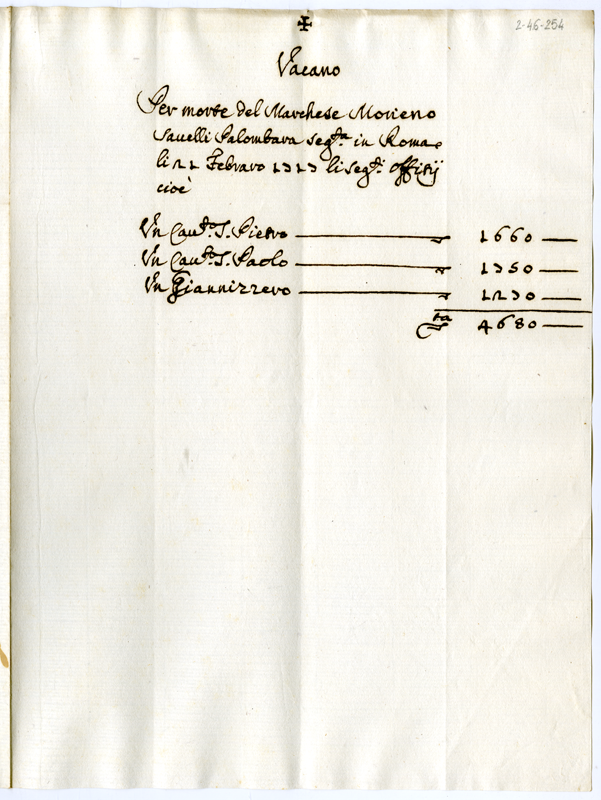 ✠
2-46-254
Vacano
Per morte del Marchese Morieno
Sauelli Palombara seg.ta in Roma
li 21 Febraro 1717 li seg.ti offitij
cioè
Vn Cau.to S. Pietro 1660
Vn Cau.to S. Paolo 1750
Vn Giannizzero 1270
4680